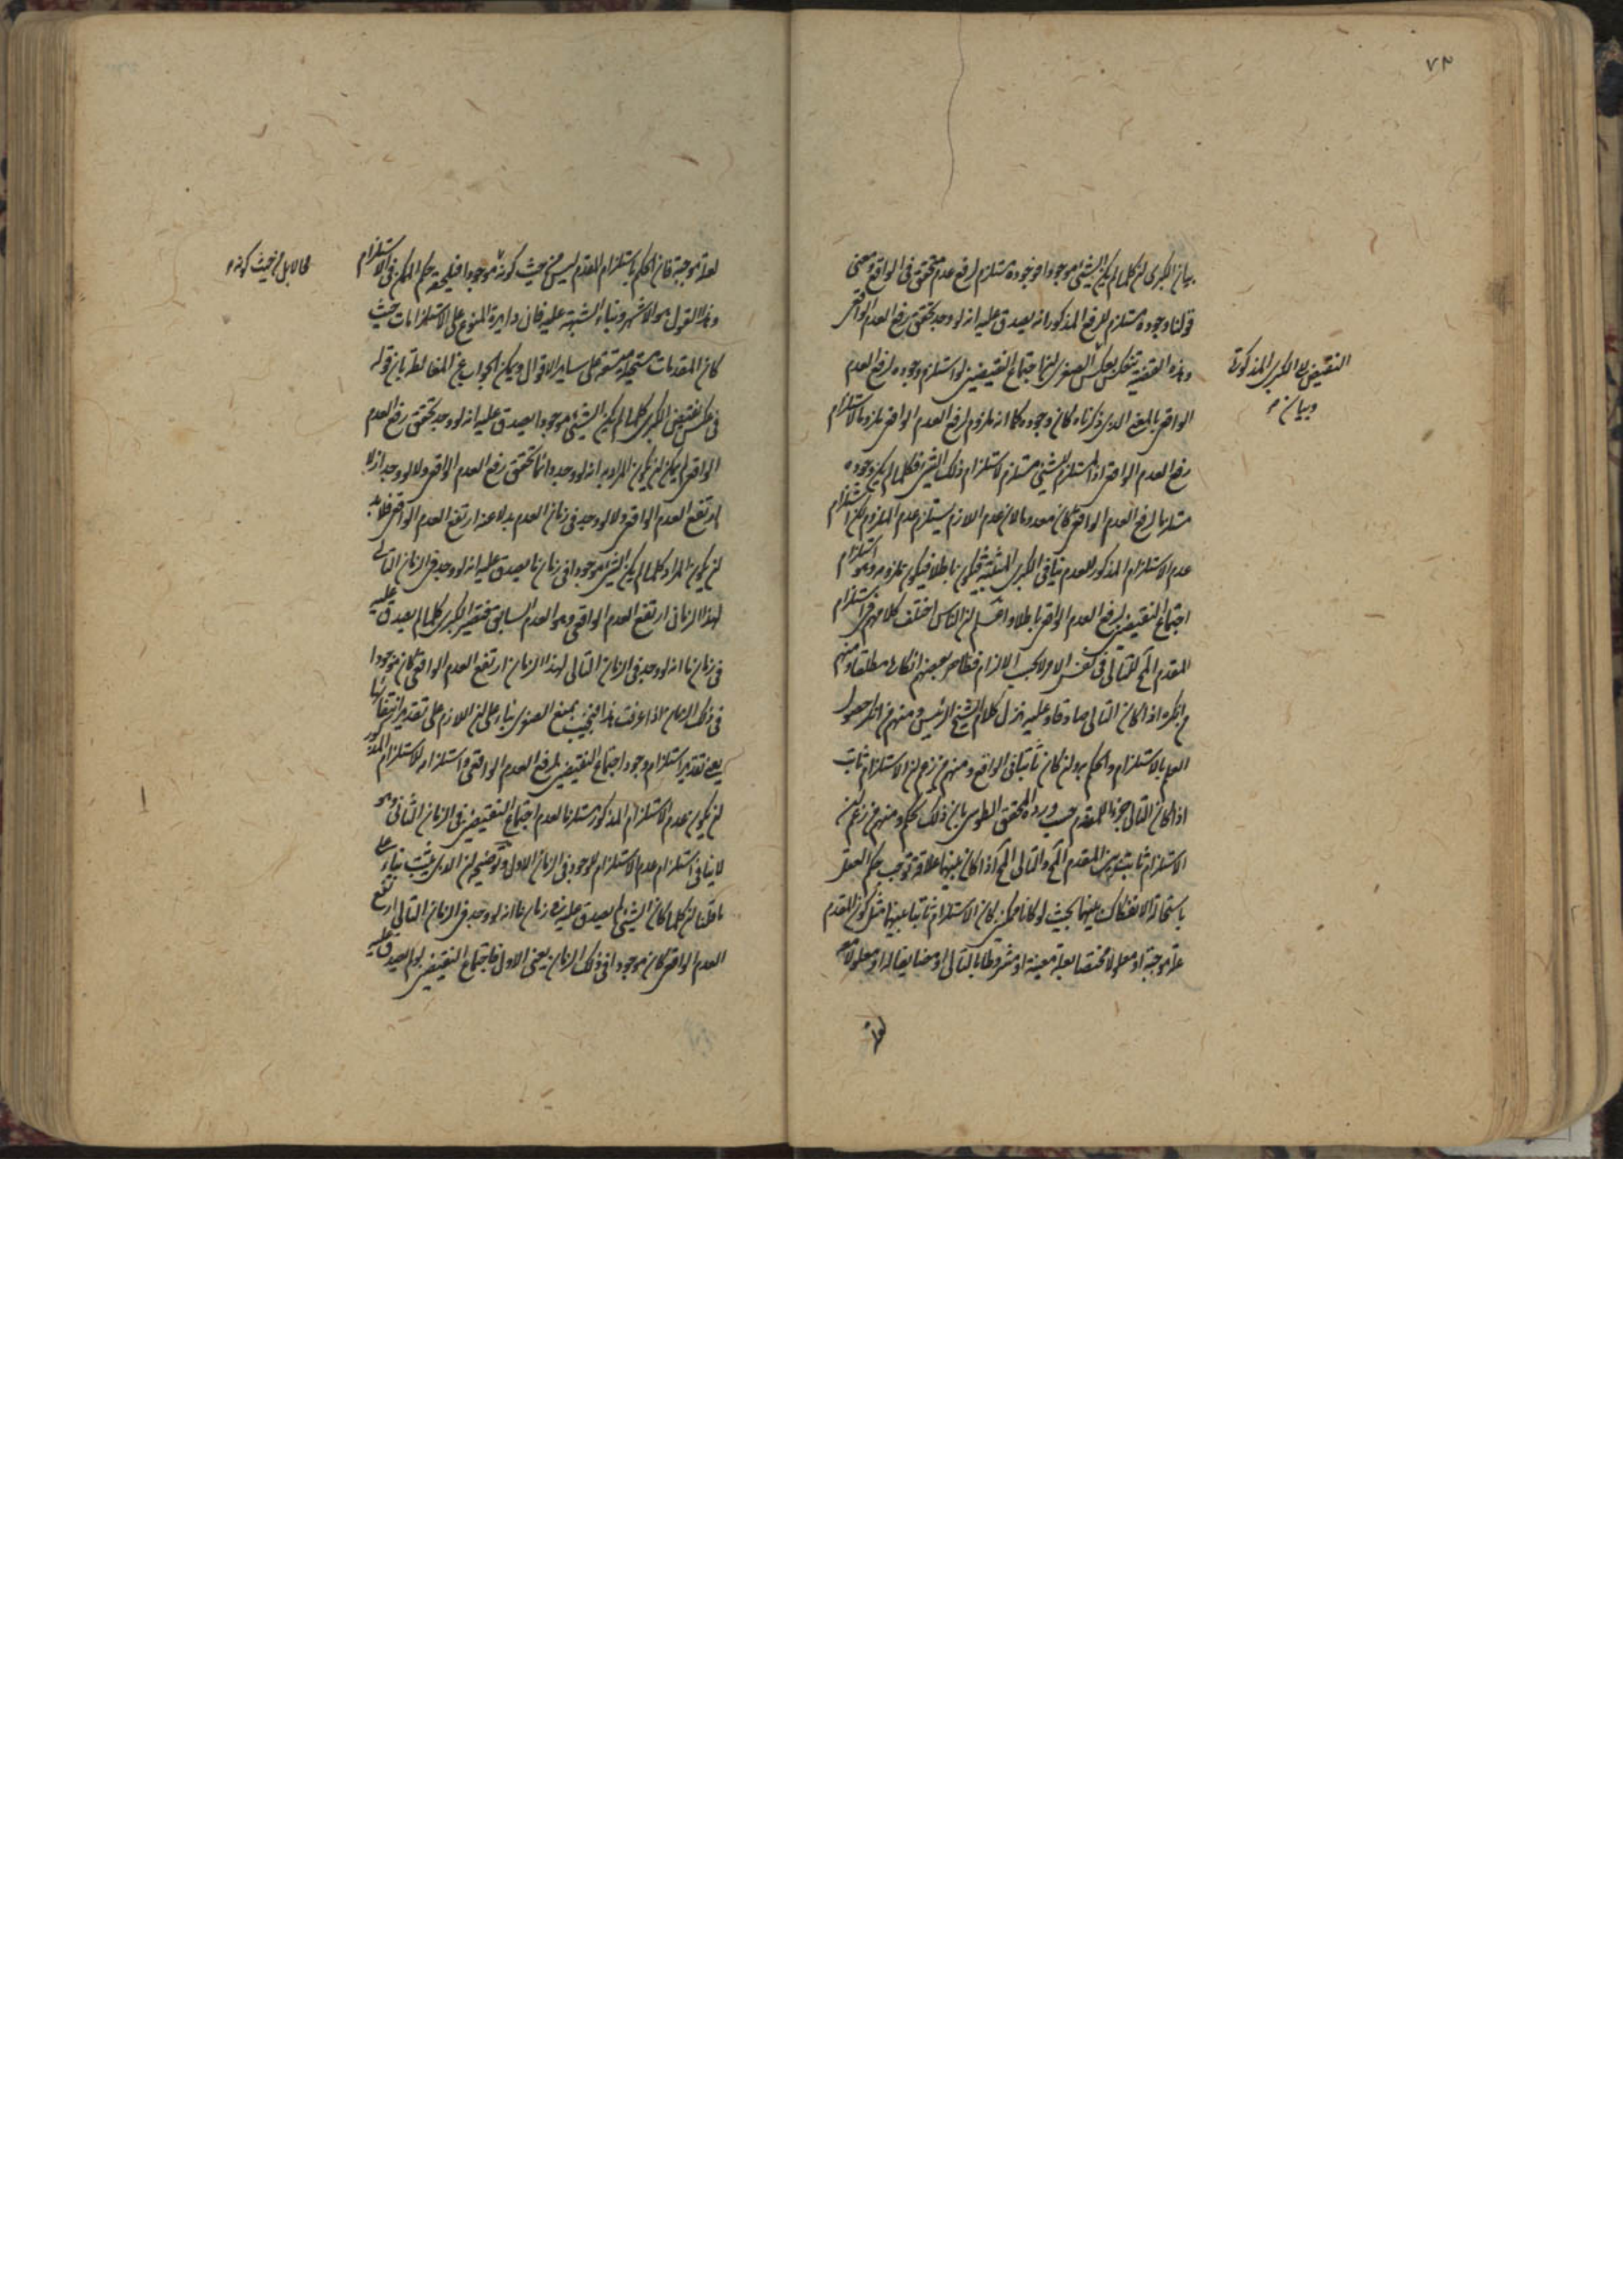 ٧٣
بيان الكبرى ان كلما لم يكن الشيء موجودا فوجوده مستلزم لرفع عدم محقق في الواقع ومعنى
قولنا وجوده مستلزم للرفع المذكور انه يصدق عليه انه لو وجد تحقق رفع العدم الواقعي
وهذه القضية تنعكس بعكس النقيض الى
النقيض الى الكبرى المذكورة
وبيان
الواقعي بالمعنى الذي ذكرناه كان وجوده كما انه ملزوم لرفع العدم الواقعي ملزوما لاستلزام
رفع العدم الواقعي اذ المستلزم للشيء مستلزم لاستلزام ذلك الشيء فكلما لم يكن وجوده
مستلزما لرفع العدم الواقعي كان معدوما لان عدم اللازم يستلزم عدم الملزوم لكن استلزام
عدم الاستلزام المذكور للعدم ينافي الكبرى المثبتة فيكون باطلا فيكون ملزومه وهو استلزام
اجتماع النقيضين لرفع العدم الواقعي باطلا واعلم ان الناس اختلف كلامهم في استلزام
المقدم المح للتالي في نفس الامر لا بحسب الالزام فظاهر بعضهم انكاره مطلقا ومنهم
من انكره اذا كان التالي صادقا وعليه نزل كلام الشيخ الرئيس ومنهم من انكر حصول
العلم بالاستلزام والحكم به وان كان ثابتا في الواقع ومنهم من زعم ان الاستلزام ثابت
اذا كان التالي جزءا للمقدم حسب ورده المحقق الطوسي بان ذلك تحكم ومنهم من زعم ان
الاستلزام ثابت بين المقدم المح والتالي المح اذا كان بينهما علاقة توجب حكم العقل
باستحالة الانفكاك بينهما بحيث لو كانا ممكنين كان الاستلزام ثابتا بينهما مثل كون المقدم
علة موجبة او معلولا مختصا بعلة معينة او مشروطا بالتالي او مضايفا له او معلولا
لعلة
لعلة موجبة فان الحكم باستلزام المقدم ليس من حيث كونه موجودا فيلحقه حكم الممكن في الاستلزام
محالا بل من حيث كونه
وهذا القول هو الاشهر وبناء الشبهة عليه فان دايرة المنوع على الاستلزامات حيث
كان المقدمات مستحيلة متسعة على ساير الاقوال ويمكن الجواب عن المغالطة بان قوله
في عكس نقيض الكبرى كلما لم يكن الشيء موجودا يصدق عليه انه لو وجد تحقق رفع العدم
الواقعي لم يمكن ان يكون المراد به انه لو وجد دائما تحقق رفع العدم الواقعي ولا لو وجد ازلا
ارتفع العدم الواقعي ولا لو وجد في زمان العدم بدلا عنه ارتفع العدم الواقعي فلا بد
ان يكون المراد كلما لم يكن الشيء موجودا في زمان ما يصدق عليه انه لو وجد في الزمان التالي
لهذا الزمان ارتفع العدم الواقعي وهو العدم السابق فتصير الكبرى كلما لم يصدق عليه
في زمان ما انه لو وجد في الزمان التالي لهذا الزمان ارتفع العدم الواقعي كان موجودا
في ذلك الزمان اذا عرفت هذا فنجيب بمنع الصغرى بناء على ان اللازم على تقدير انتفائها
يعني تقدير استلزام وجود اجتماع النقيضين لرفع العدم الواقعي واستلزامه لاستلزام المذكور
ان يكون عدم الاستلزام المذكور مستلزما لعدم اجتماع النقيضين في الزمان الثاني وهو
لا ينافي استلزام عدم الاستلزام للوجود في الزمان الاول وتوضيحه ان الذي يثبت بناء على
ما قلنا ان كلما كان الشيء لم يصدق عليه في زمان ما انه لو وجد في الزمان التالي ارتفع
العدم الواقعي كان موجودا في ذلك الزمان يعني الاول فاجتماع النقيضين لو لم يصدق عليه